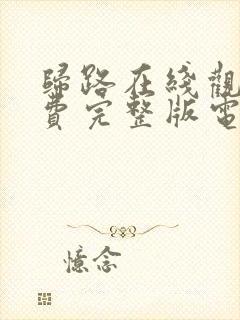 歸路在綫觀
費完整版電
憶念